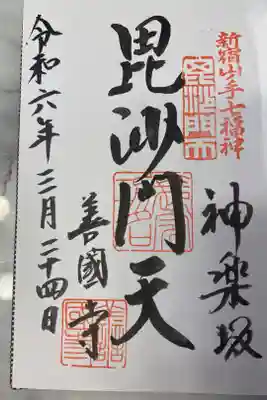 新宿山手七福神
神楽坂
毘沙門天
善國寺
令和六年三月二十四日